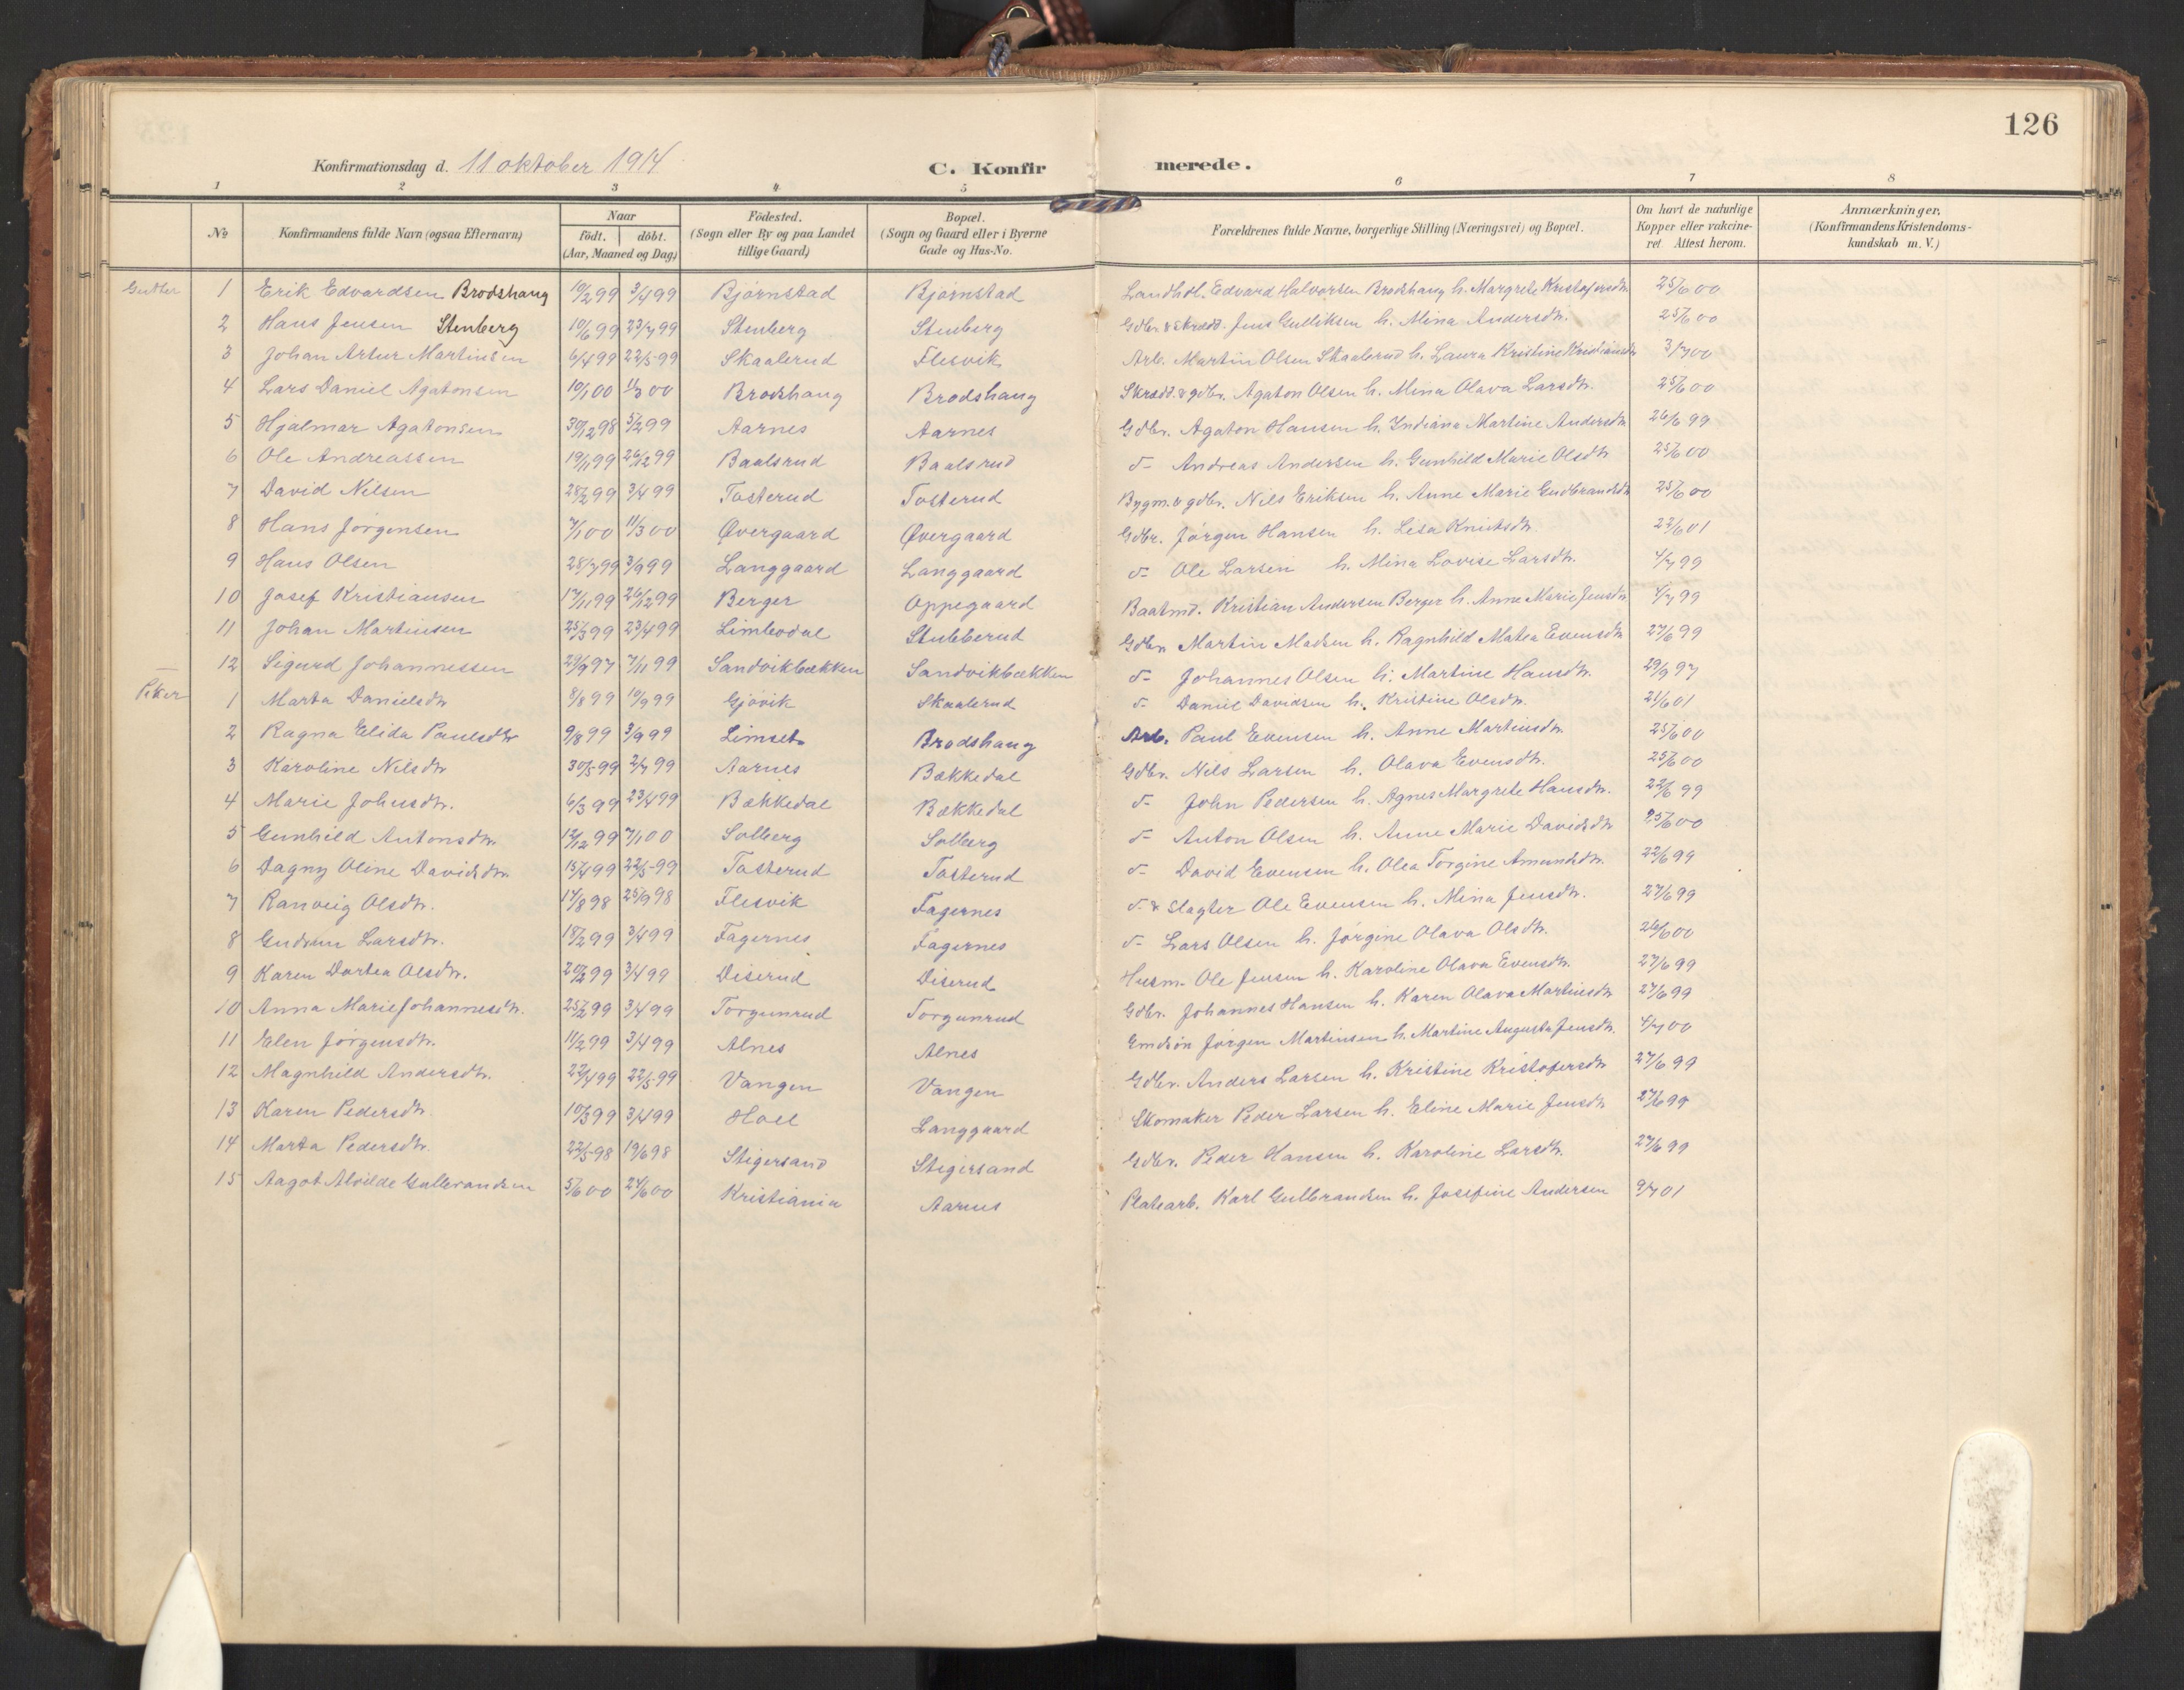 126
Konfirmationsdag d. 11 oktober 1914
C. Konfirmerede.
1 2 3 4 5 6 7 8
No
Konfirmandens fulde Navn (ogsaa Efternavn)
Naar
födt. döbt.
(Aar, Maaned og Dag)
Födested.
(Sogn eller By og paa Landet
tillige Gaard)
Bopæl.
(Sogn og Gaard eller i Byerne
Gade og Hus-No.
Forældrenes fulde Navne, borgerlige Stilling (Næringsvei) og Bopæl.
Om havt de naturlige
Kopper eller vakcine-
ret Attest herom.
Anmærkninger.
(Konfirmandens Kristendoms-
kundskab m. V.)
Gutter 1 Erik Edvardsen Brodshaug 10/2 99 3/4 99 Bjørnstad Bjørnstad Landhdl. Edvard Halvorsen Brodshaug h. Margrete Kristofersdtr 25/6 00
2 Hans Jensen Stenberg 10/6 99 23/7 99 Stenberg Stenberg Gdbr. & skrædd. Jens Gulliksen h. Mina Andersdtr. 25/6 00
3 Johan Artur Martinsen 6/4 99 22/5 99 Skaalerud Flesvik Arb. Martin Olsen Skaalerud h. Laura Kristine Kristiansdtr 3/7 00
4 Lars Daniel Agatonsen 10/1 00 11/3 00 Brodshaug Brodshaug Skrædd. & gdbr. Agaton Olsen h. Mina Olava Larsdtr. 25/6 00
5 Hjalmar Agatonsen 30/12 98 5/2 99 Aarnes Aarnes Gdbr. Agaton Hansen h. Indiana Martine Andersdtr 26/6 99
6 Ole Andreassen 19/11 99 26/12 99 Baalsrud Baalsrud d- Andreas Andersen h. Gunhild Marie Olsdtr 25/6 00
7 David Nilsen 28/2 99 3/4 99 Tosterud Tosterud Bygm. & gdbr. Nils Eriksen h. Anne Marie Gudbrandsdtr 25/6 00
8 Hans Jørgensen 7/1 00 11/3 00 Øvergaard Øvergaard Gdbr. Jørgen Hansen h. Lisa Knutsdtr. 22/6 01
9 Hans Olsen 28/7 99 3/9 99 Langgaard Langgaard d- Ole Larsen h. Mina Lovise Larsdtr. 4/7 99
10 Josef Kristiansen 17/11 99 26/12 99 Berger Oppegaard Baatmd. Kristian Andersen Berger h. Anne Marie Jensdtr 4/7 99
11 Johan Martinsen 25/3 99 23/4 99 Limbodal Stubberud Gdbr. Martin Madsen h. Ragnhild Matea Evensdtr 27/6 99
12 Sigurd Johannessen 29/9 97 7/11 99 Sandvikbækken Sandvikbækken d- Johannes Olsen h. Martine Hansdtr. 29/9 97
Piker 1 Marta Danielsdtr 8/8 99 10/9 99 Gjøvik Skaalerud d- Daniel Davidsen h. Kristine Olsdtr. 21/6 01
2 Ragna Elida Paulsdtr 9/8 99 3/9 99 Limset Brodshaug Arb. Paul Evensen h. Anne Martinsdtr. 25/6 00
3 Karoline Nilsdtr 30/5 99 2/7 99 Aarnes Bækkedal Gdbr. Nils Larsen h. Olava Evensdtr. 25/6 00
4 Marie Johnsdtr. 6/3 99 23/4 99 Bækkedal Bækkedal d- John Pedersen h. Agnes Margrete Hansdtr. 22/6 99
5 Gunhild Antonsdtr. 12/12 99 7/1 00 Solberg Solberg d- Anton Olsen h. Anne Marie Davidsdtr 25/6 00
6 Dagny Oline Davidsdtr. 15/4 99 22/5 99 Tosterud Tosterud d- David Evensen h. Olea Torgine Amundsdtr. 22/6 99
7 Ranveig Olsdtr. 14/8 98 25/9 98 Flesvik Fagernes d- & slagter Ole Evensen h. Mina Jensdtr. 27/6 99
8 Gudrun Larsdtr. 18/2 99 3/4 99 Fagernes Fagernes d- Lars Olsen h. Jørgine Olava Olsdtr. 26/6 00
9 Karen Dortea Olsdtr. 20/2 99 3/4 99 Diserud Diserud Husm. Ole Jensen h. Karoline Olava Evensdtr. 27/6 99
10 Anna Marie Johannesdtr. 25/2 99 3/4 99 Torgunrud Torgunrud Gdbr. Johannes Hansen h. Karen Olava Martinsdtr 27/6 99
11 Elen Jørgensdtr. 11/2 99 3/4 99 Alnes Alnes Jørgen Martinsen h. Martine Augusta Jensdtr. 4/7 00
12 Magnhild Andersdtr. 22/4 99 22/5 99 Vangen Vangen Gdbr. Anders Larsen h. Kristine Kristofersdtr 27/6 99
13 Karen Pedersdtr. 10/3 99 3/4 99 Hoel Langgaard Skomaker Peder Larsen h. Eline Marie Jensdtr 27/6 99
14 Marta Pedersdtr. 22/5 98 19/6 98 Stigersand Stigersand Gdbr. Peder Hansen h. Karoline Larsdtr. 27/6 99
15 Aagot Alvilde Gulbrandsen 5/6 00 24/6 00 Kristiania Aarnes Platearb. Karl Gulbrandsen h. Josefine Andersen 9/7 01